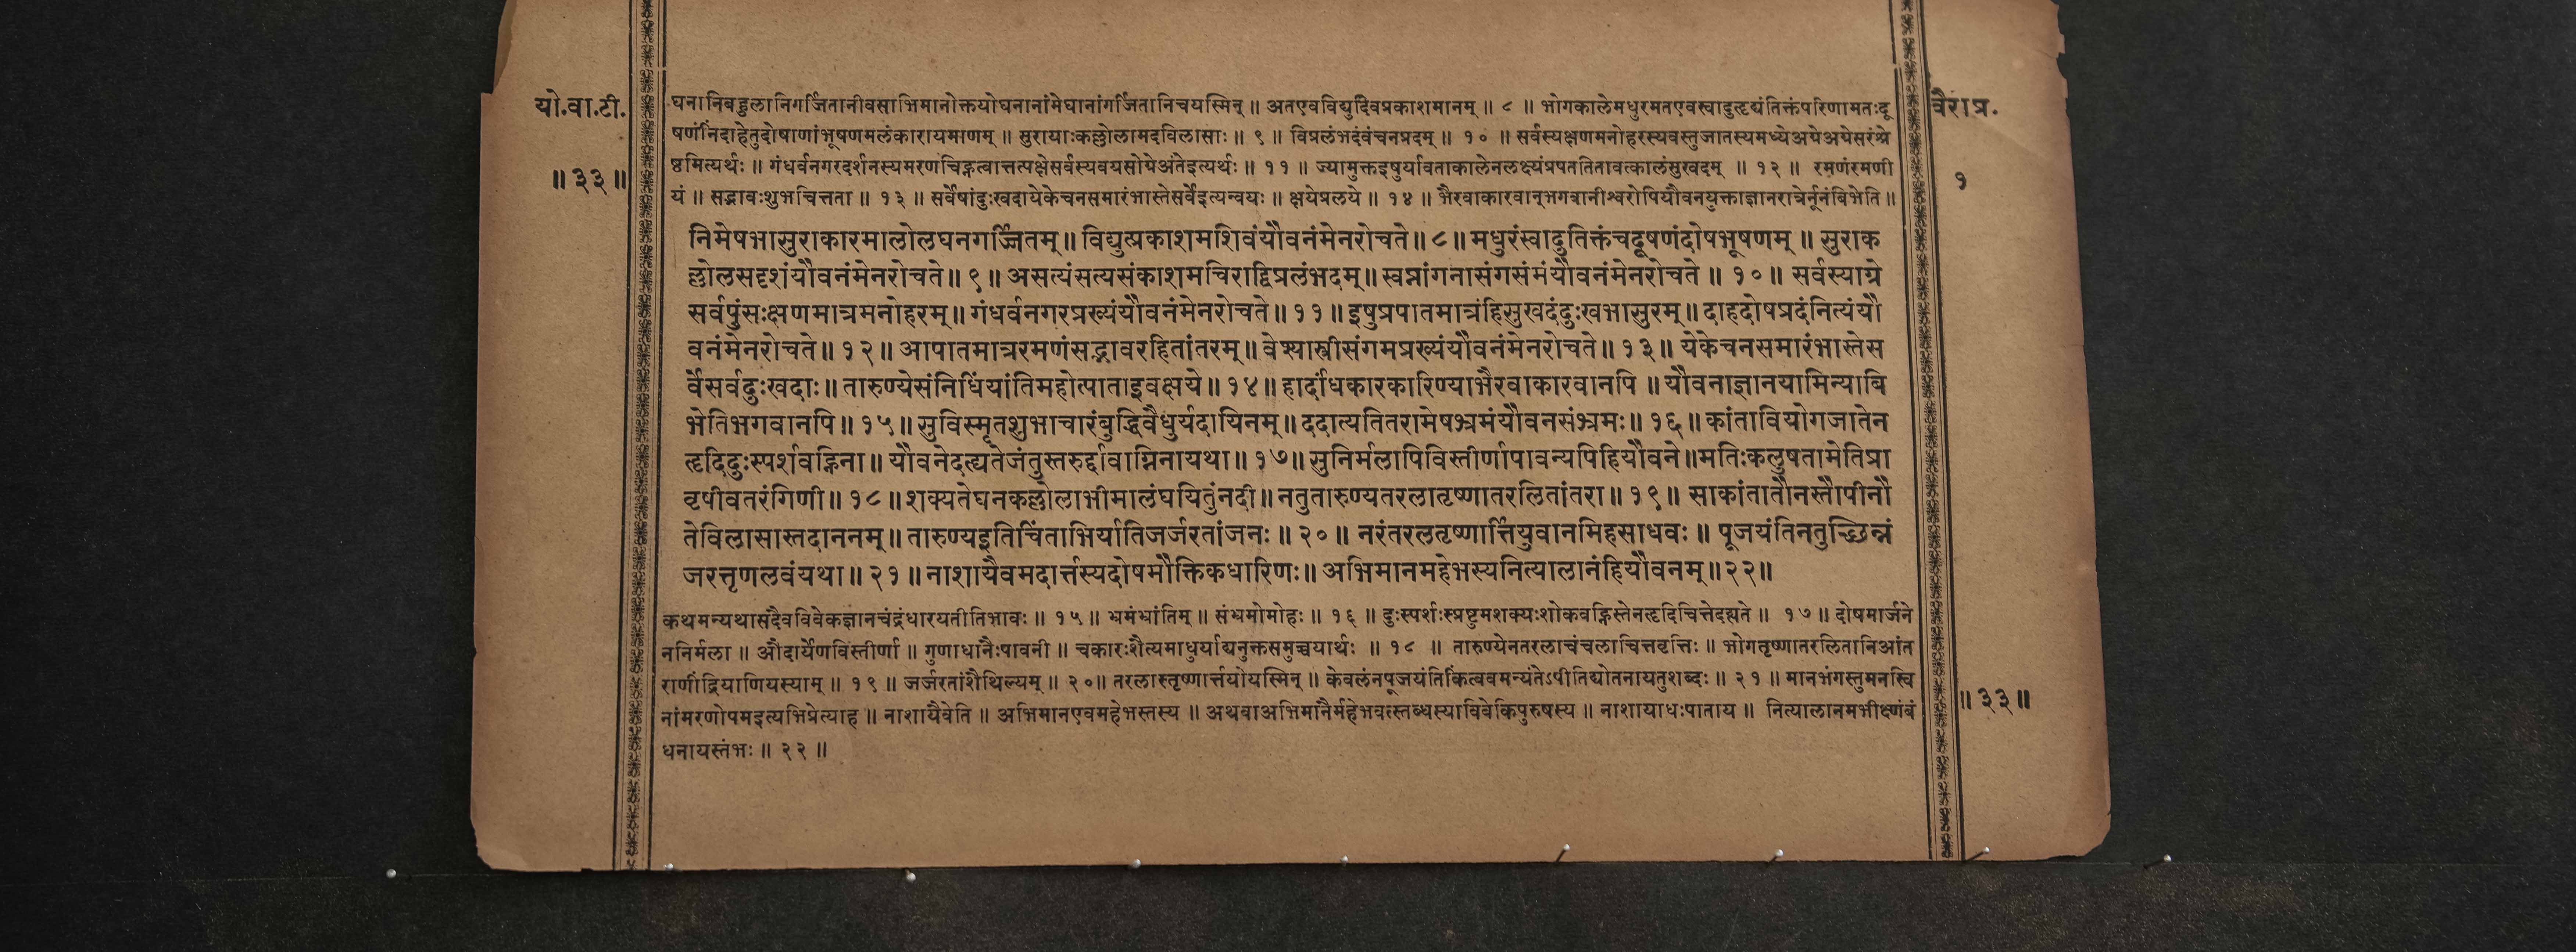 यो.वा.टी.
॥ ३३ ॥
वैराप्र.
१
घनानिबहुलानिगर्जितानीवसाभिमानोक्तयोघनानांमेघानांगर्जितानिचयस्मिन् ॥ अतएवविद्युदिवप्रकाशमानम् ॥ ८ ॥ भोगकालेमधुरमतएवस्वादुहृद्यंतिक्तंपरिणामतःदू
षणंनिंदाहेतुदोषाणांभूषणमलंकारायमाणम् ॥ सुरायाःकल्लोलामदविलासाः ॥ ९ ॥ विप्रलंभदंवंचनप्रदम् ॥ १० ॥ सर्वस्यक्षणमनोहरस्यवस्तुजातस्यमध्येअग्रेअग्रेसरंश्रे
ष्ठमित्यर्थः ॥ गंधर्वनगरदर्शनस्यमरणचिह्नत्वात्तत्पक्षेसर्वस्यवयसोग्रेअंतेइत्यर्थः ॥ ११ ॥ ज्यामुक्तइषुर्यावताकालेनलक्ष्यंप्रपततितावत्कालंसुखदम् ॥ १२ ॥ रमणंरमणी
यं ॥ सद्भावःशुभचित्तता ॥ १३ ॥ सर्वेषांदुःखदायेकेचनसमारंभास्तेसर्वेइत्यन्वयः ॥ क्षयेप्रलये ॥ १४ ॥ भैरवाकारवान्भगवानीश्वरोपियौवनयुक्ताज्ञानरात्रेर्नूनंबिभेति ॥
निमेषभासुराकारमालोलघनगर्ज्जितम् ॥ विद्युत्प्रकाशमशिवंयौवनंमेनरोचते ॥ ८ ॥ मधुरंस्वादुतिक्तंचदूषणंदोषभूषणम् ॥ सुराक
ल्लोलसदृशंयौवनंमेनरोचते ॥ ९ ॥ असत्यंसत्यसंकाशमचिराद्विप्रलंभदम् ॥ स्वप्नांगनासंगसंमंयौवनंमेनरोचते ॥ १० ॥ सर्वस्याग्रे
सर्वपुंसःक्षणमात्रमनोहरम् ॥ गंधर्वनगरप्रख्यंयौवनंमेनरोचते ॥ ११ ॥ इषुप्रपातमात्रंहिसुखदंदुःखभासुरम् ॥ दाहदोषप्रदंनित्यंयौ
वनंमेनरोचते ॥ १२ ॥ आपातमात्ररमणंसद्भावरहितांतरम् ॥ वेश्यास्त्रीसंगमप्रख्यंयौवनंमेनरोचते ॥ १३ ॥ येकेचनसमारंभास्तेस
र्वेसर्वदुःखदाः ॥ तारुण्येसंनिधिंयांतिमहोत्पाताइवक्षये ॥ १४ ॥ हार्दांधकारकारिण्याभैरवाकारवानपि ॥ यौवनाज्ञानयामिन्याबि
भेतिभगवानपि ॥ १५ ॥ सुविस्मृतशुभाचारंबुद्धिवैधुर्यदायिनम् ॥ ददात्यतितरामेषभ्रमंयौवनसंभ्रमः ॥ १६ ॥ कांतावियोगजातेन
हृदिदुःस्पर्शवह्निना ॥ यौवनेदह्यतेजंतुस्तरुर्दावाग्निनायथा ॥ १७ ॥ सुनिर्मलापिविस्तीर्णापावन्यपिहियौवने ॥ मतिःकलुषतामेतिप्रा
वृषीवतरंगिणी ॥ १८ ॥ शक्यतेघनकल्लोलाभीमालंघयितुंनदी ॥ नतुतारुण्यतरलातृष्णातरलितांतरा ॥ १९ ॥ साकांतातौनस्तौपीनौ
तेविलासास्तदाननम् ॥ तारुण्यइतिचिंताभिर्यातिजर्जरतांजनः ॥ २० ॥ नरंतरलतृष्णार्त्तियुवानमिहसाधवः ॥ पूजयंतिनतुच्छिन्नं
जरत्तृणलवंयथा ॥ २१ ॥ नाशायैवमदार्त्तस्यदोषमौक्तिकधारिणः ॥ अभिमानमहेभस्यनित्यालानंहियौवनम् ॥ २२ ॥
कथमन्यथासदैवविवेकज्ञानचंद्रंधारयतीतिभावः ॥ १५ ॥ भ्रमंभ्रांतिम् ॥ संभ्रमोमोहः ॥ १६ ॥ दुःस्पर्शःस्प्रष्टुमशक्यःशोकवह्निस्तेनहृदिचित्तेदह्यते ॥ १७ ॥ दोषमार्जने
ननिर्मला ॥ औदार्येणविस्तीर्णा ॥ गुणाधानैःपावनी ॥ चकारःशैत्यमाधुर्याद्यनुक्तसमुच्चयार्थः ॥ १८ ॥ तारुण्येनतरलाचंचलाचित्तवृत्तिः ॥ भोगतृष्णातरलितानिआंत
राणींद्रियाणियस्याम् ॥ १९ ॥ जर्जरतांशैथिल्यम् ॥ २० ॥ तरलास्तृष्णार्त्तयोयस्मिन् ॥ केवलंनपूजयंतिकिंत्ववमन्यंतेऽपीतिद्योतनायतुशब्दः ॥ २१ ॥ मानभंगस्तुमनस्वि
नांमरणोपमइत्यभिप्रेत्याह ॥ नाशायैवेति ॥ अभिमानएवमहेभस्तस्य ॥ अथवाअभिमानैर्महेभवत्स्तब्धस्याविवेकिपुरुषस्य ॥ नाशायाधःपाताय ॥ नित्यालानमभीक्ष्णंबं
धनायस्तंभः ॥ २२ ॥
॥ ३३ ॥